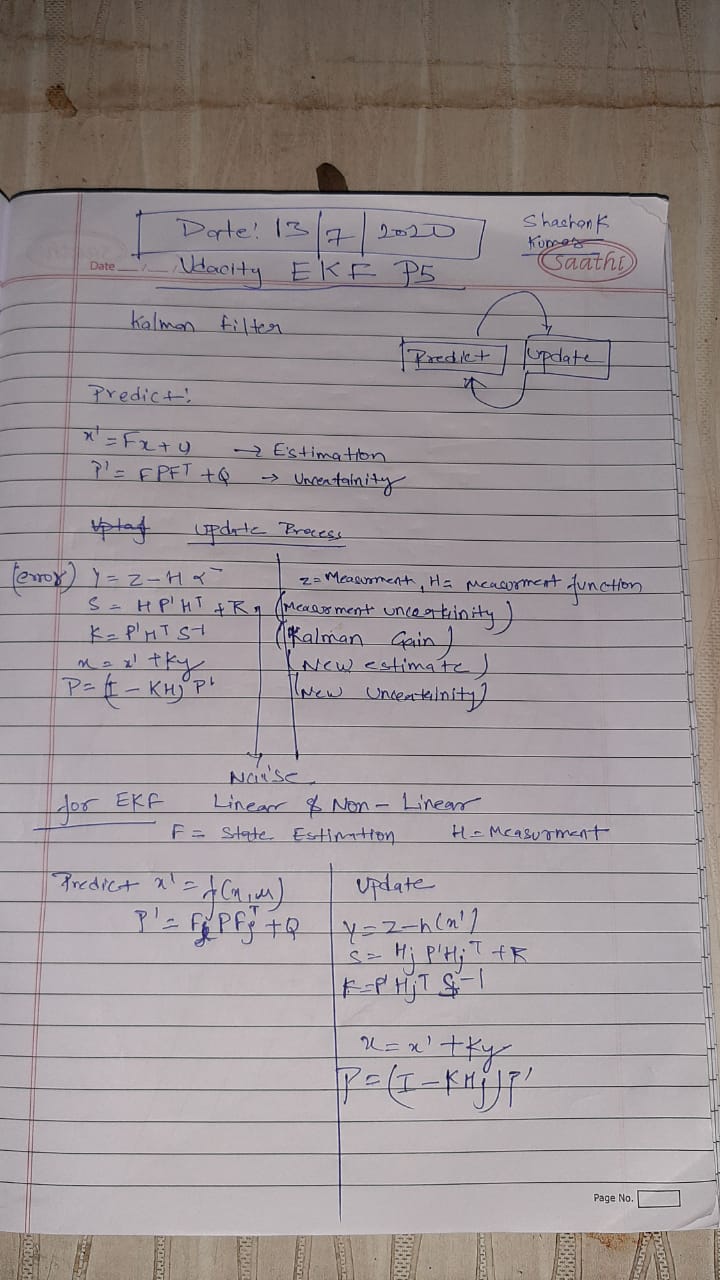 Date: 13/7/2020
Shashank
Kumar
Saathi
Date
Udacity EKF P5
Kalman filter
Predict
Update
Predict:
x' = Fx + u → Estimation
P' = FPFᵀ + Q → Uncertainity
update Process
(error) Y = z - H x⁻
z = Measurment, H = Measorment function
S = HP'Hᵀ + R, (Measorment uncertainity)
K = P'Hᵀ S⁻¹ (Kalman Gain)
x = x' + Ky (New estimate)
P = (I - KH) P' (New Uncertainity)
Noise
for EKF Linear & Non-Linear
F = State Estimation H = Measurment
Predict x' = f(x, u)
P' = Fj P Fjᵀ + Q
update
Y = z - h(x')
S = Hj P' Hjᵀ + R
K = P' Hjᵀ S⁻¹
x = x' + Ky
P = (I - KHj) P'
Page No.